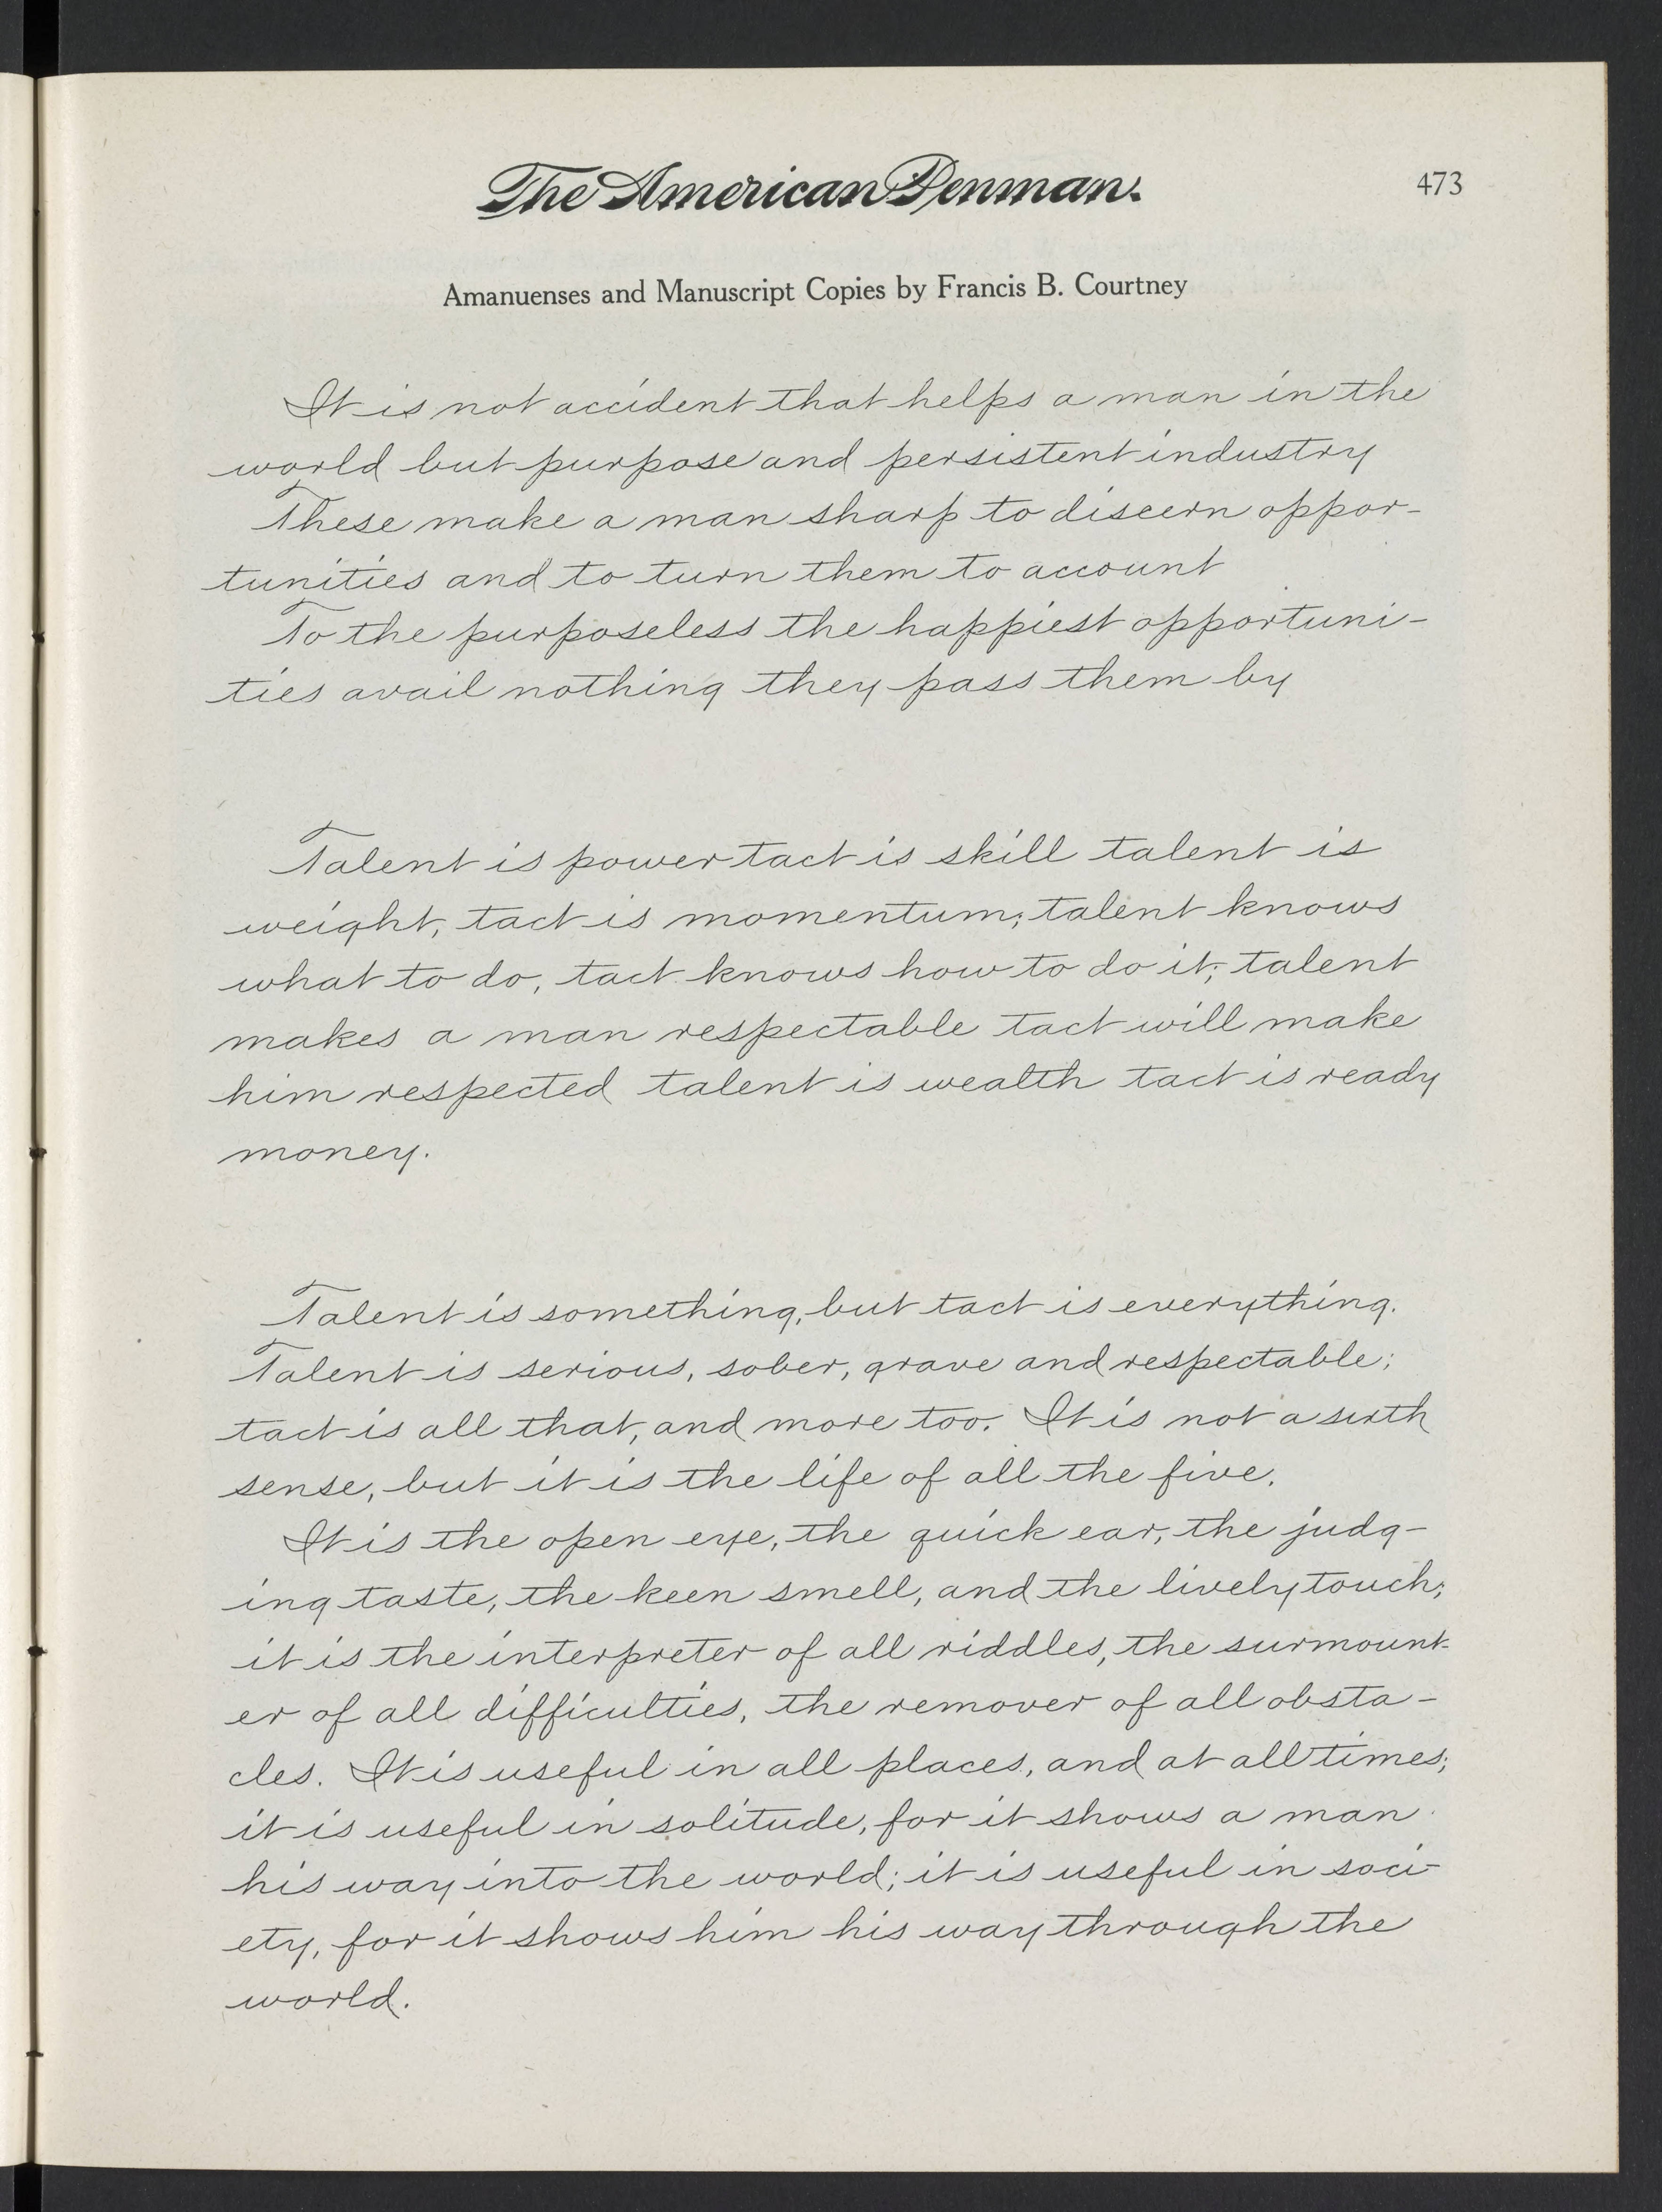 The American Penman.
473
Amanuenses and Manuscript Copies by Francis B. Courtney
It is not accident that helps a man in the
world but purpose and persistent industry
These make a man sharp to discern oppor-
tunities and to turn them to account
To the purposeless the happiest opportuni-
ties avail nothing they pass them by
Talent is power tact is skill talent is
weight, tact is momentum; talent knows
what to do, tact knows how to do it; talent
makes a man respectable tact will make
him respected talent is wealth tact is ready
money.
Talent is something, but tact is everything.
Talent is serious, sober, grave and respectable;
tact is all that, and more too. It is not a sixth
sense, but it is the life of all the five.
It is the open eye, the quick ear, the judg-
ing taste, the keen smell, and the lively touch;
it is the interpreter of all riddles, the surmount-
er of all difficulties, the remover of all obsta-
cles. It is useful in all places, and at all times;
it is useful in solitude, for it shows a man
his way into the world; it is useful in soci-
ety, for it shows him his way through the
world.